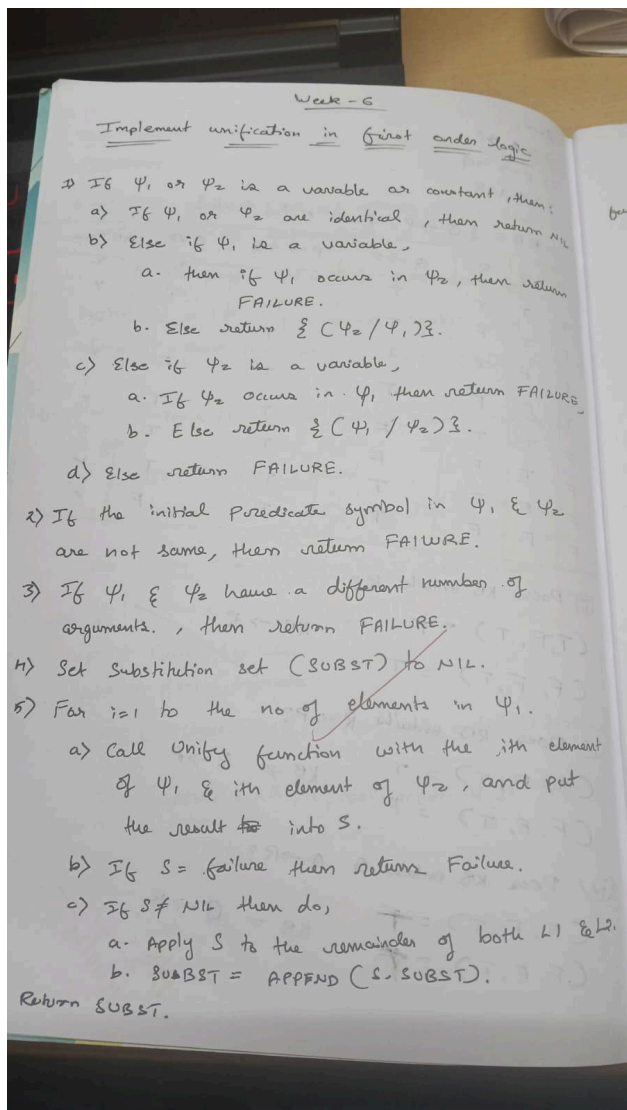 Week - 6
Implement unification in first order logic
1) If Ψ1 or Ψ2 is a variable or constant, then:
a) If Ψ1 or Ψ2 are identical, then return NIL
b) Else if Ψ1 is a variable,
a. then if Ψ1 occurs in Ψ2, then return
FAILURE.
b. Else return { (Ψ2 / Ψ1)}.
c) Else if Ψ2 is a variable,
a. If Ψ2 occurs in Ψ1 then return FAILURE,
b. Else return { (Ψ1 / Ψ2)}.
d) Else return FAILURE.
2) If the initial Predicate symbol in Ψ1 & Ψ2
are not same, then return FAILURE.
3) If Ψ1 & Ψ2 have a different number of
arguments., then return FAILURE.
4) Set Substitution set (SUBST) to NIL.
5) For i=1 to the no of elements in Ψ1.
a) Call Unify function with the ith element
of Ψ1 & ith element of Ψ2, and put
the result into S.
b) If S = failure then returns Failure.
c) If S ≠ NIL then do,
a. Apply S to the remainder of both L1 & L2.
b. SUBST = APPEND (S, SUBST).
Return SUBST.